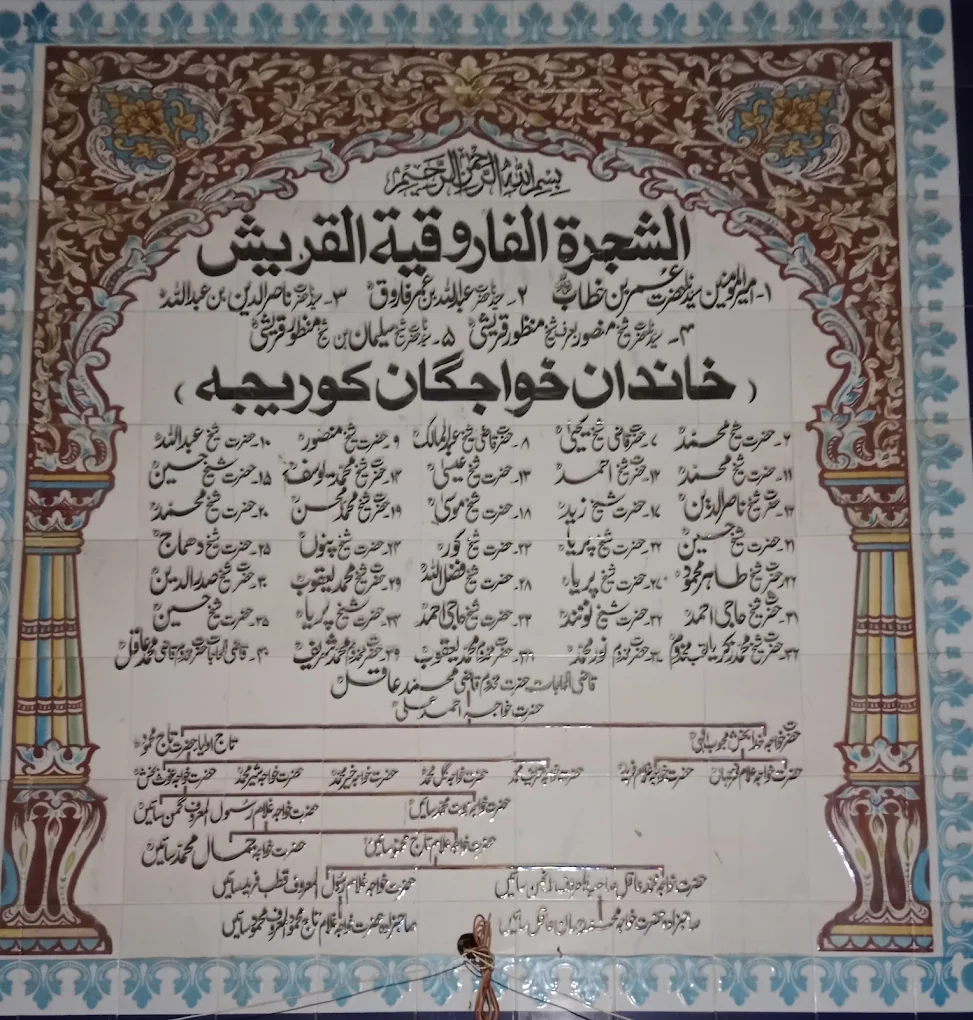 بسم اللہ الرحمن الرحیم
الشجرۃ الفاروقیۃ القریش
۱۔ امیرالمومنین سیدنا حضرت عمر بن خطابؓ ۲۔ سیدنا حضرت عبداللہ بن عمر فاروقؓ ۳۔ سیدنا حضرت ناصر الدین بن عبداللہؓ
۴۔ سیدنا حضرت شیخ منصور بن شیخ منظور قریشیؒ ۵۔ سیدنا حضرت شیخ سلیمان بن شیخ منظور قریشیؒ
( خاندان خواجگان کوریجہ )
۶۔ حضرت شیخ محمدؒ ۷۔ حضرت قاضی شیخ یحییٰؒ ۸۔ حضرت قاضی شیخ عبدالمالکؒ ۹۔ حضرت شیخ منصورؒ ۱۰۔ حضرت شیخ عبداللہؒ
۱۱۔ حضرت شیخ محمدؒ ۱۲۔ حضرت شیخ احمدؒ ۱۳۔ حضرت شیخ عیسیٰؒ ۱۴۔ حضرت شیخ محمد یوسفؒ ۱۵۔ حضرت شیخ حسینؒ
حضرت شیخ ناصر الدینؒ ۱۷۔ حضرت شیخ زیدؒ ۱۸۔ حضرت شیخ موسیٰؒ ۱۹۔ حضرت شیخ محمد محسنؒ ۲۰۔ حضرت شیخ محمدؒ
۲۱۔ حضرت شیخ حسینؒ ۲۲۔ حضرت شیخ پریاؒ حضرت شیخ کورؒ حضرت شیخ پنوںؒ ۲۵۔ حضرت شیخ دھماچؒ
حضرت شیخ طاہر محمودؒ ۲۷۔ حضرت شیخ پریاؒ ۲۸۔ حضرت شیخ فضل اللہؒ ۲۹۔ حضرت شیخ محمد یعقوبؒ ۳۰۔ حضرت شیخ صدر الدینؒ
۳۱۔ حضرت شیخ حاجی احمدؒ ۳۲۔ حضرت شیخ نوتندؒ حضرت شیخ حاجی احمدؒ حضرت شیخ پریاؒ ۳۵۔ حضرت شیخ حسینؒ
حضرت شیخ محمد زکریا لقب مخدومؒ حضرت مخدوم نور محمدؒ ۳۸۔ حضرت مخدوم محمد یعقوبؒ ۳۹۔ حضرت مخدوم محمد شریفؒ ۴۰۔ قاضی الحاجات حضرت مخدوم قاضی محمد عاقلؒ
قاضی الحاجات حضرت مخدوم قاضی محمد عاقلؒ
حضرت خواجہ احمد علیؒ
حضرت خواجہ خدا بخش محبوب الٰہیؒ تاج اولیا حضرت تاج محمودؒ
حضرت خواجہ غلام فخر جہاںؒ حضرت خواجہ غلام فریدؒ حضرت خواجہ محمدؒ حضرت خواجہ گل محمدؒ حضرت خواجہ خیر محمدؒ حضرت خواجہ شیر محمدؒ حضرت خواجہ بخشؒ
حضرت خواجہ محمد سائیںؒ حضرت خواجہ غلام رسول المعروف سائیںؒ
حضرت خواجہ غلام تاج محمود سائیںؒ حضرت خواجہ جمال محمد سائیںؒ
حضرت خواجہ محمد عاقل المعروف سائیں حضرت خواجہ غلام رسول المعروف قطب فرید سائیںؒ
صاحبزادہ حضرت خواجہ محمد عاقل سائیں صاحبزادہ حضرت خواجہ غلام تاج محمود المعروف محمود سائیں